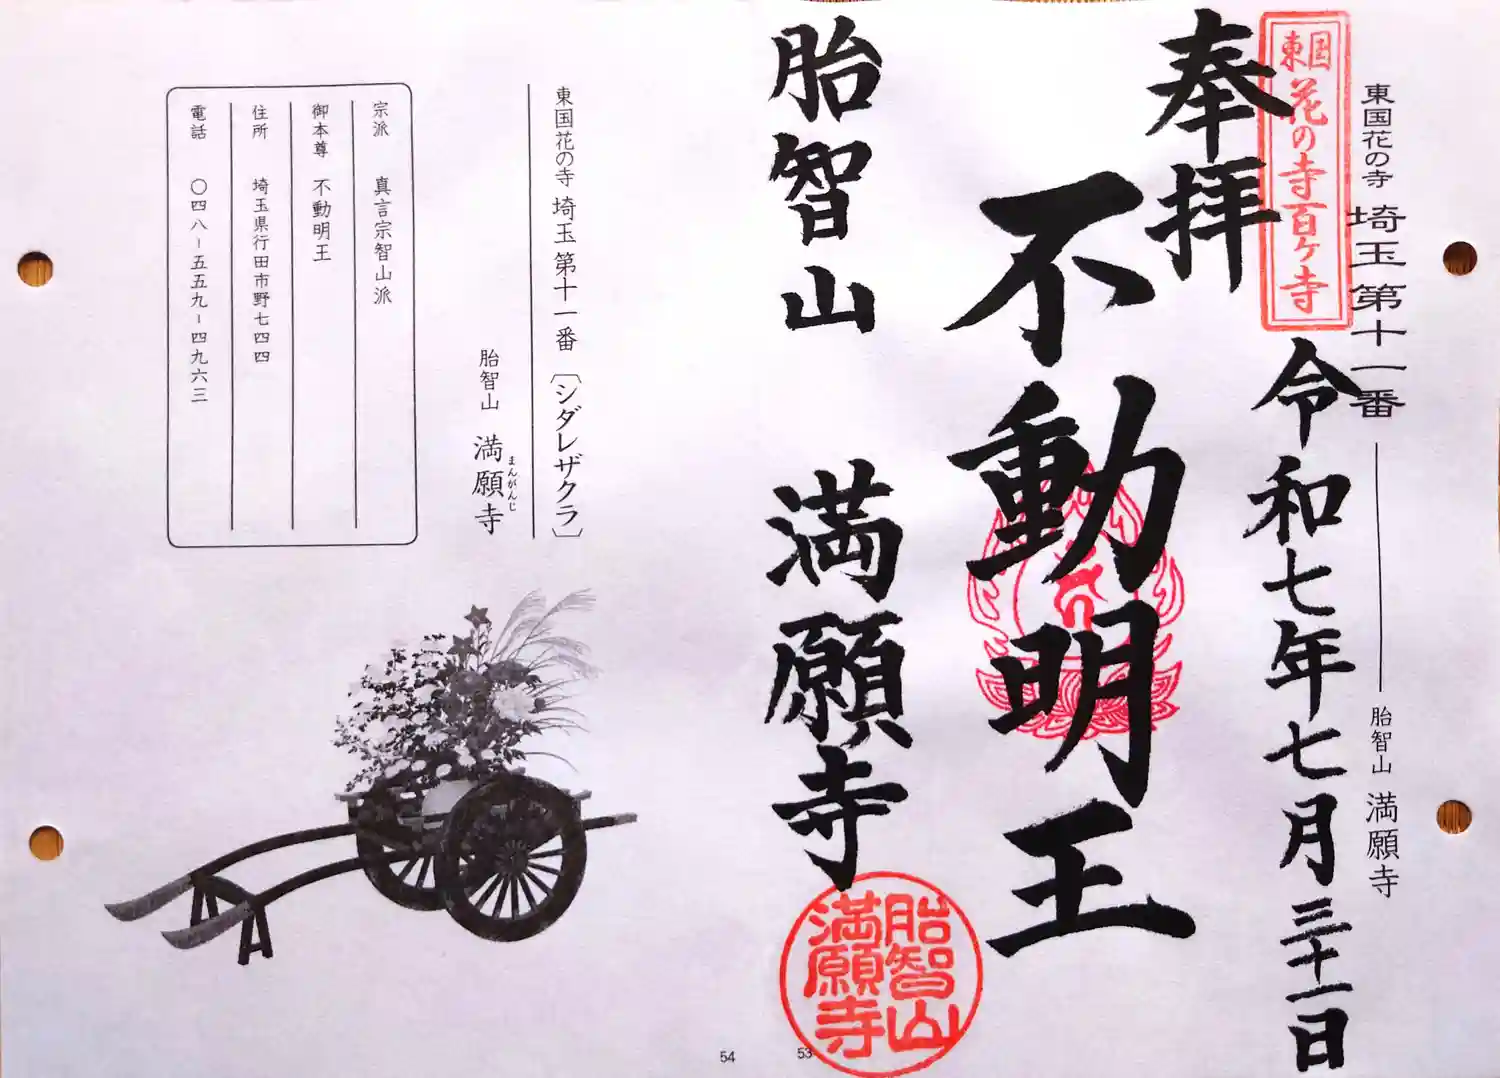 東国花の寺 埼玉第十一番 胎智山 満願寺
東国花の寺百ケ寺
奉拝
令和七年七月三十一日
不動明王
胎智山 満願寺
胎智山
満願寺
53
東国花の寺 埼玉第十一番 〔シダレザクラ〕
胎智山 満願寺
まんがんじ
宗派 真言宗智山派
御本尊 不動明王
住所 埼玉県行田市野七四四
電話 〇四八-五五九-四九六三
54